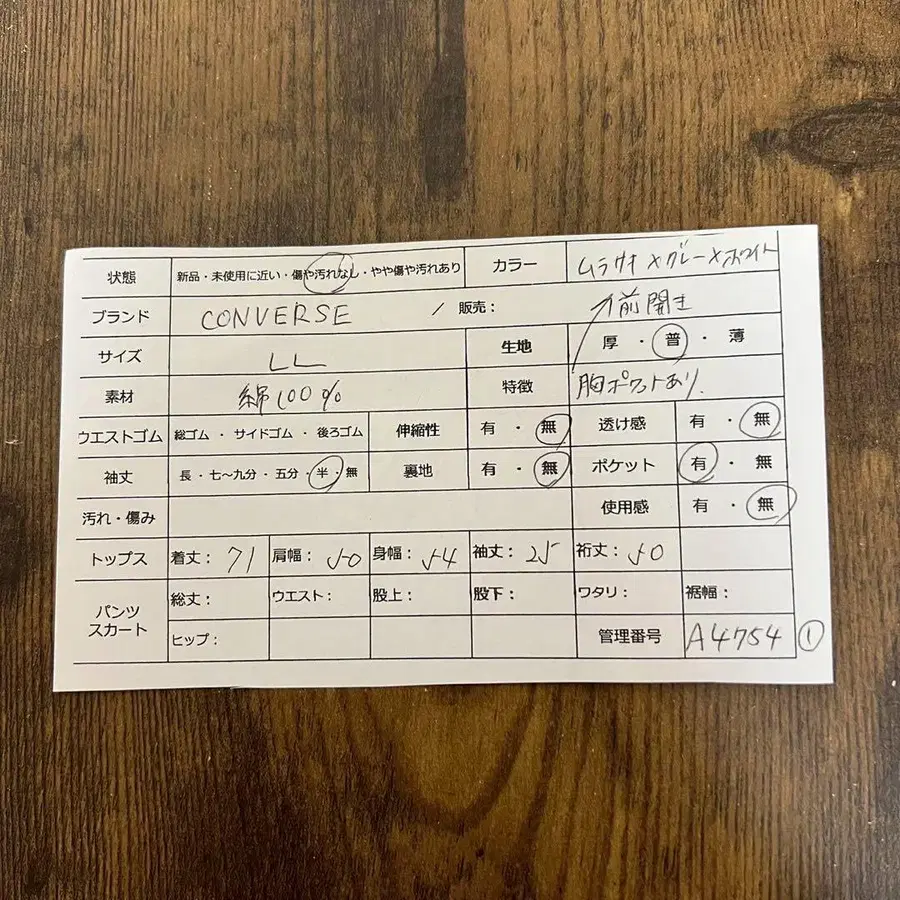 状態 新品・未使用に近い・傷や汚れなし・やや傷や汚れあり カラー ムラサキ×グレー×ホワイト
ブランド CONVERSE / 販売: 前開き
サイズ LL 生地 厚・普・薄
素材 綿100% 特徴 胸ポケットあり.
ウエストゴム 総ゴム・サイドゴム・後ろゴム 伸縮性 有・無 透け感 有・無
袖丈 長・七〜九分・五分・半・無 裏地 有・無 ポケット 有・無
汚れ・傷み 使用感 有・無
トップス 着丈: 71 肩幅: 50 身幅: 54 袖丈: 25 裄丈: 50
パンツ スカート 総丈: ウエスト: 股上: 股下: ワタリ: 裾幅:
ヒップ: 管理番号 A4754 ①